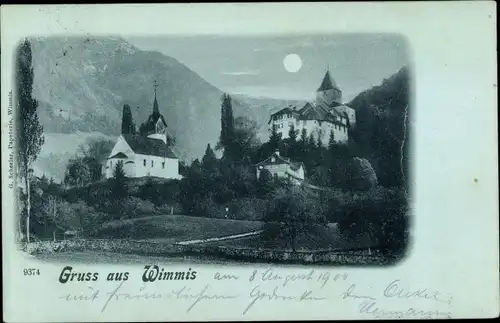 G. Scheeler, Papeterie, Wimmis.
9374
Gruss aus Wimmis
am 8 August 1900
mit freundlichem Gedenken dem Onkel
Hermann